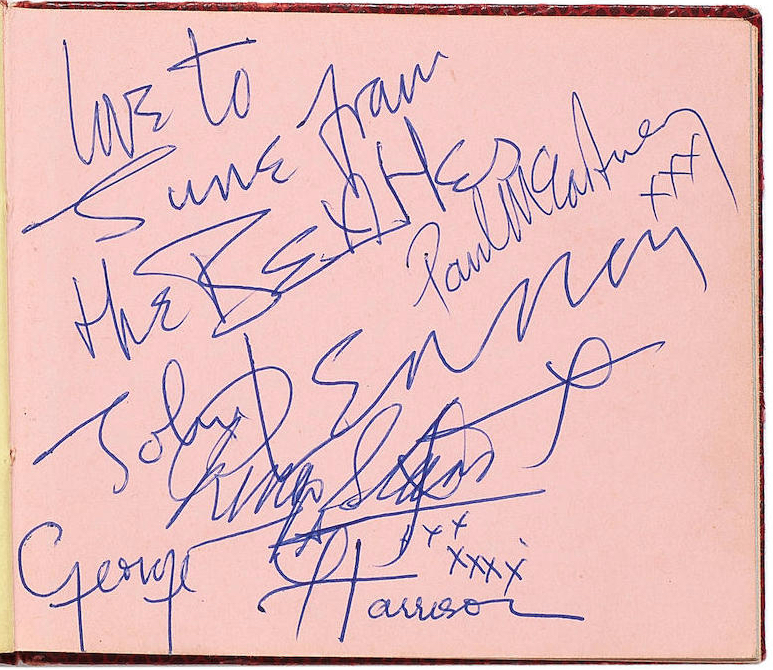 love to
Sune from
the BEATLES
Paul McCartney
xxx
John Lennon
x
Ringo Starr
xxx
George Harrison
xxxx